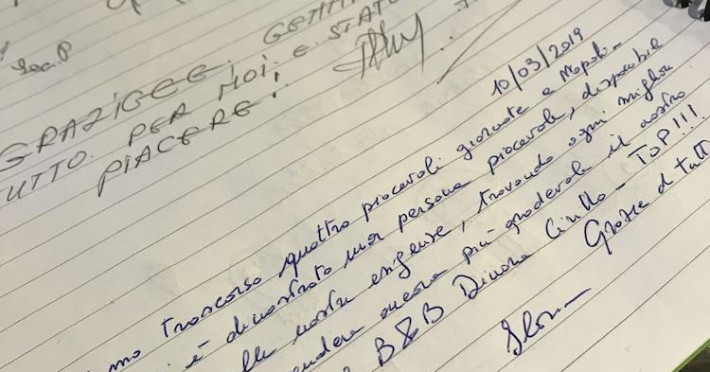 GRAZIE E. GENTI
UTTO. PER MOI. E. STATO
PIACERE!
10/03/2019
mo trascorso quattro piacevoli giornate a Napoli.
è dimostrato una persona piacevole, disponibile
lle nostre esigenze, trovando ogni miglior
endere ancora più gradevole il nostro
B&B Dimora Cirillo - TOP!!!
Grazie di tutt